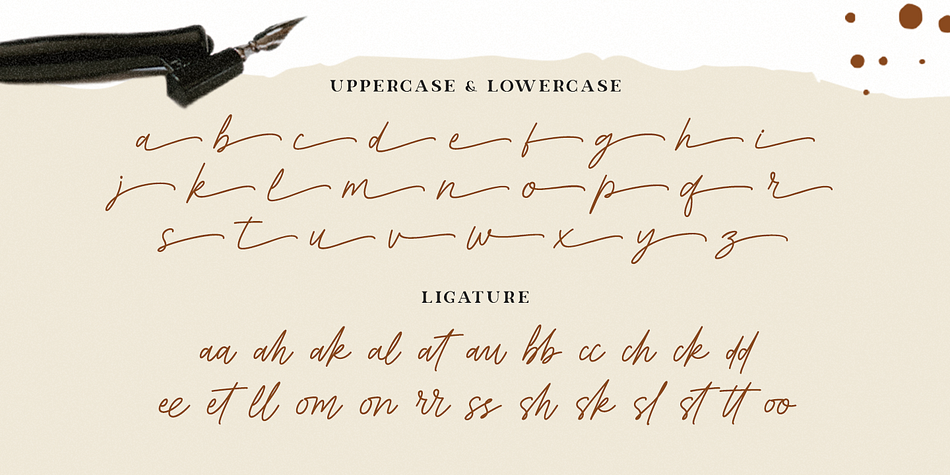 UPPERCASE & LOWERCASE
a b c d e f g h i
j k l m n o p q r
s t u v w x y z
LIGATURE
aa ah ak al at au bb cc ch ck dd
ee et ll om on rr ss sh sk sl st tt oo